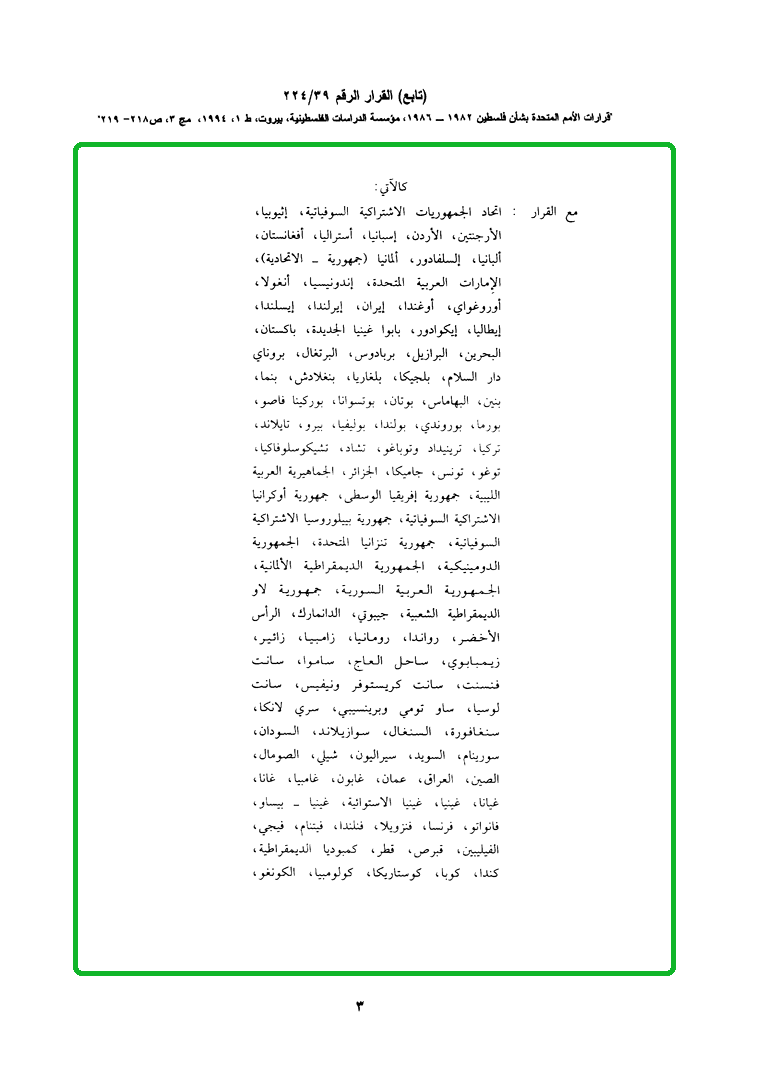 (تابع) القرار الرقم ٢٢٤/٣٩
"قرارات الأمم المتحدة بشأن فلسطين ١٩٨٢ ــ ١٩٨٦، مؤسسة الدراسات الفلسطينية، بيروت، ط ١، ١٩٩٤، مج ٣، ص٢١٨- ٢١٩"
كالآتي:
مع القرار : اتحاد الجمهوريات الاشتراكية السوفياتية، إثيوبيا،
الأرجنتين، الأردن، إسبانيا، أستراليا، أفغانستان،
ألبانيا، إلسلفادور، ألمانيا (جمهورية ــ الاتحادية)،
الإمارات العربية المتحدة، إندونيسيا، أنغولا،
أوروغواي، أوغندا، إيران، إيرلندا، إيسلندا،
إيطاليا، إيكوادور، بابوا غينيا الجديدة، باكستان،
البحرين، البرازيل، بربادوس، البرتغال، بروناي
دار السلام، بلجيكا، بلغاريا، بنغلادش، بنما،
بنين، البهاماس، بوتان، بوتسوانا، بوركينا فاصو،
بورما، بوروندي، بولندا، بوليفيا، بيرو، تايلاند،
تركيا، ترينيداد وتوباغو، تشاد، تشيكوسلوفاكيا،
توغو، تونس، جاميكا، الجزائر، الجماهيرية العربية
الليبية، جمهورية إفريقيا الوسطى، جمهورية أوكرانيا
الاشتراكية السوفياتية، جمهورية بييلوروسيا الاشتراكية
السوفياتية، جمهورية تنزانيا المتحدة، الجمهورية
الدومينيكية، الجمهورية الديمقراطية الألمانية،
الجمهورية العربية السورية، جمهورية لاو
الديمقراطية الشعبية، جيبوتي، الدانمارك، الرأس
الأخضر، رواندا، رومانيا، زامبيا، زائير،
زيمبابوي، ساحل العاج، ساموا، سانت
فنسنت، سانت كريستوفر ونيفيس، سانت
لوسيا، ساو تومي وبرينسيبي، سري لانكا،
سنغافورة، السنغال، سوازيلاند، السودان،
سورينام، السويد، سيراليون، شيلي، الصومال،
الصين، العراق، عمان، غابون، غامبيا، غانا،
غيانا، غينيا، غينيا الاستوائية، غينيا ــ بيساو،
فانواتو، فرنسا، فنزويلا، فنلندا، فيتنام، فيجي،
الفيليبين، قبرص، قطر، كمبوديا الديمقراطية،
كندا، كوبا، كوستاريكا، كولومبيا، الكونغو،
٣